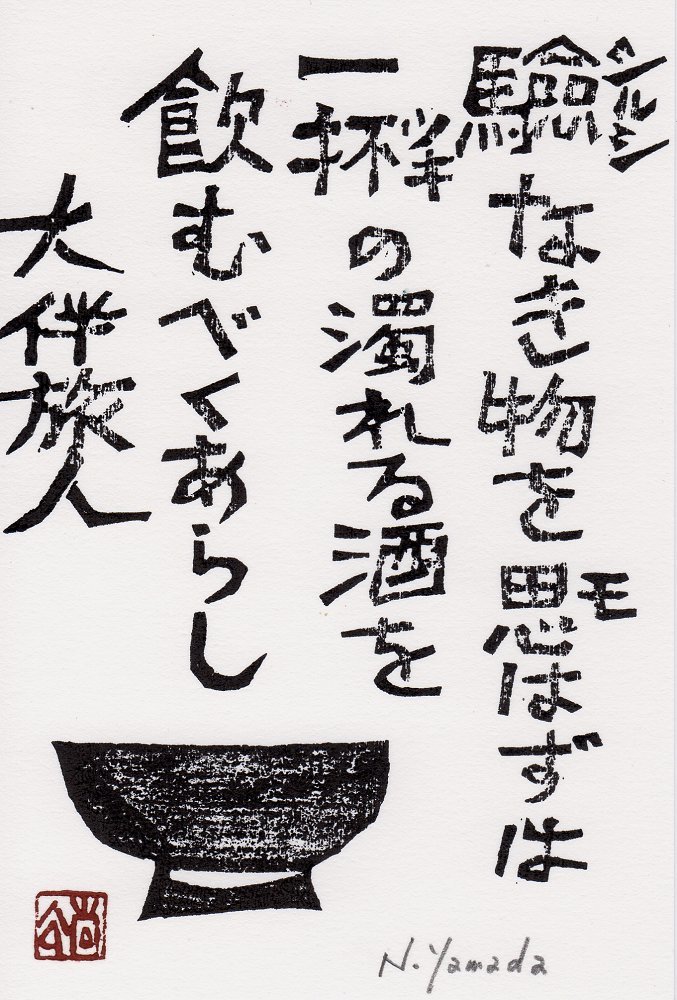 験なき物を思はずは
シルシ
モ
一杯の濁れる酒を
ツキ
飲むべくあらし
大伴旅人
N. Yamada